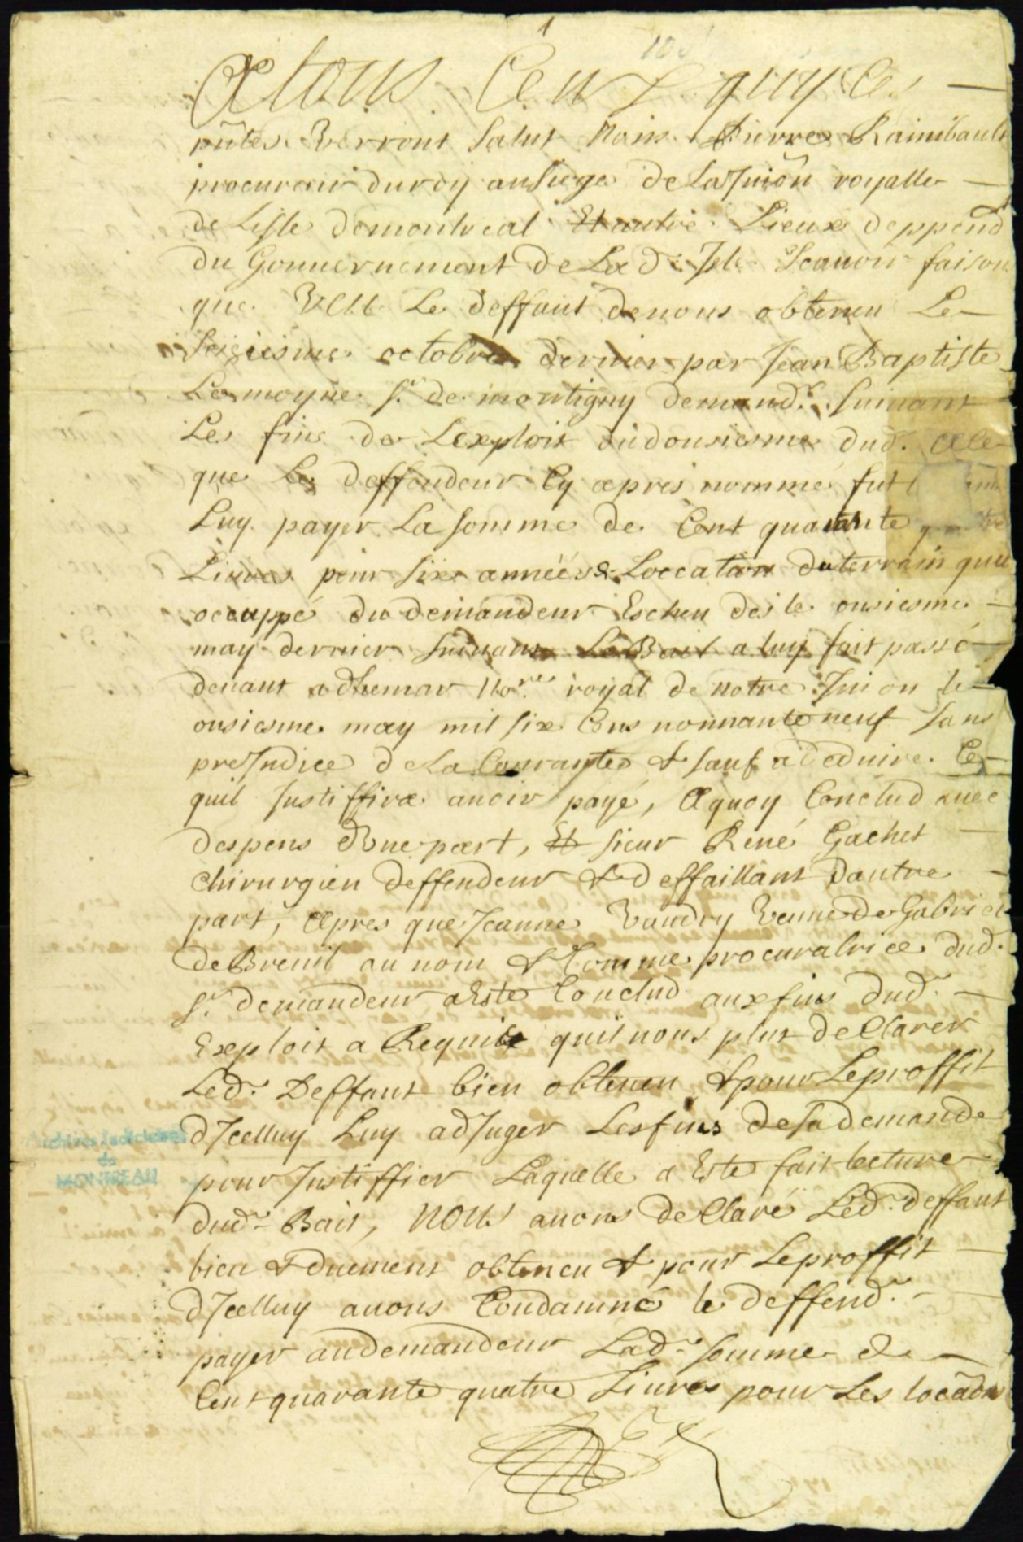 1
A tous Ceux quy Ces
pntes Verront Salut Nous Pierre Raimbault
procureur du roy au siege de La Juion royalle
de Lisle de montreal Et autre Lieux deppend
du Gouuernement de Lad. Isle Scauoir faison
que VEU Le deffaut de nous obtenu Le
Seziesme octobre dernier par Jean Baptiste
Lemoyne Sr. de montigny demandr. Suiuant
Les fins de Lexploit du dousiesme dud. a ce
que Le deffendeur Cy apres nommé fut
Luy payer La somme de Cent quarante
Liures pour six années de Loccaton du terrain quil
occuppe du demandeur Escheu des le onsiesme
may dernier suiuant Le Bail a luy fait passé
deuant adhemar Nore. royal de notre Juion le
onsiesme may mil six Cens nonnante neuf sans
preJudice de La Courante & sauf a deduire Ce
quil Justiffira auoir payé, A quoy Conclud auec
despens d'Une part, Et sieur René Gachet
Chirurgien deffendeur & deffaillant Dautre
part, Apres que Jeanne Vaudry Veuue de Gabriel
de Breuil au nom & Comme procuratrice dud.
Sr. demandeur a Este Conclud aux fins dud.
Exploit a Requis quil nous plut deClarer
Led. Deffaut bien obtenu & pour Le proffit
dJcelluy Luy adJuger Les fins de sa demande
pour Justiffier Laquelle a Este fait lecture
dud. Bail, NOUS auons deClaré Led. deffaut
bien & duement obtenu & pour Le proffit
dJcelluy auons Condamné le deffendr.
payer au demandeur Lad. somme de
Cent quarante quatre Liures pour Les locaons
Archives Judiciaires
de
MONTREAL